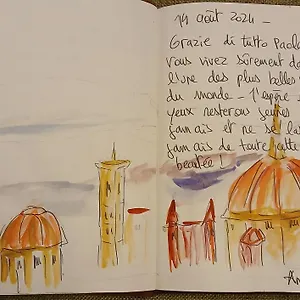 14 août 2024 -
Grazie di tutto Paola
vous vivez sûrement da
l'une des plus belles
du monde - J'espère
yeux resterons jeunes
jamais et ne se la
jamais de toute cette
beauté !